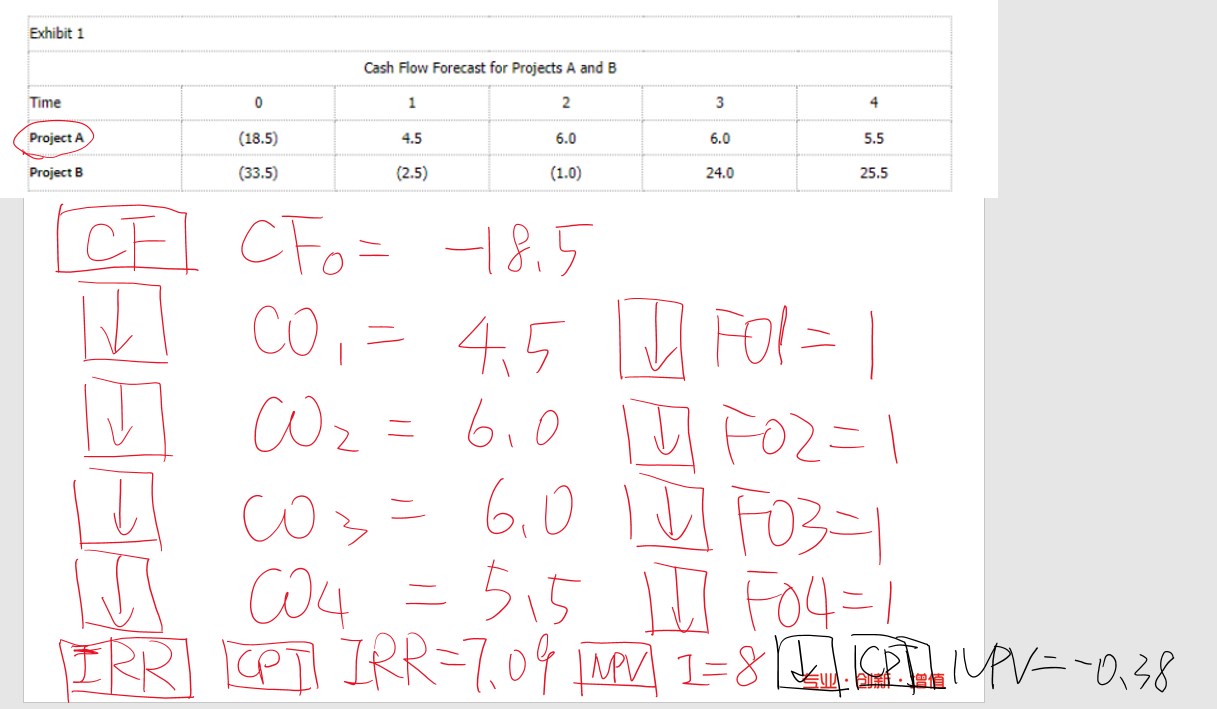 Exhibit 1
Cash Flow Forecast for Projects A and B
Time 0 1 2 3 4
Project A (18.5) 4.5 6.0 6.0 5.5
Project B (33.5) (2.5) (1.0) 24.0 25.5
CF CF₀ = -18.5
↓ C0₁ = 4.5 ↓ F01 = 1
↓ C0₂ = 6.0 ↓ F02 = 1
↓ C0₃ = 6.0 ↓ F03 = 1
↓ C04 = 5.5 ↓ F04 = 1
IRR CPT IRR = 7.09 NPV I = 8 ↓ CPT NPV = -0.38
专业·创新·增值